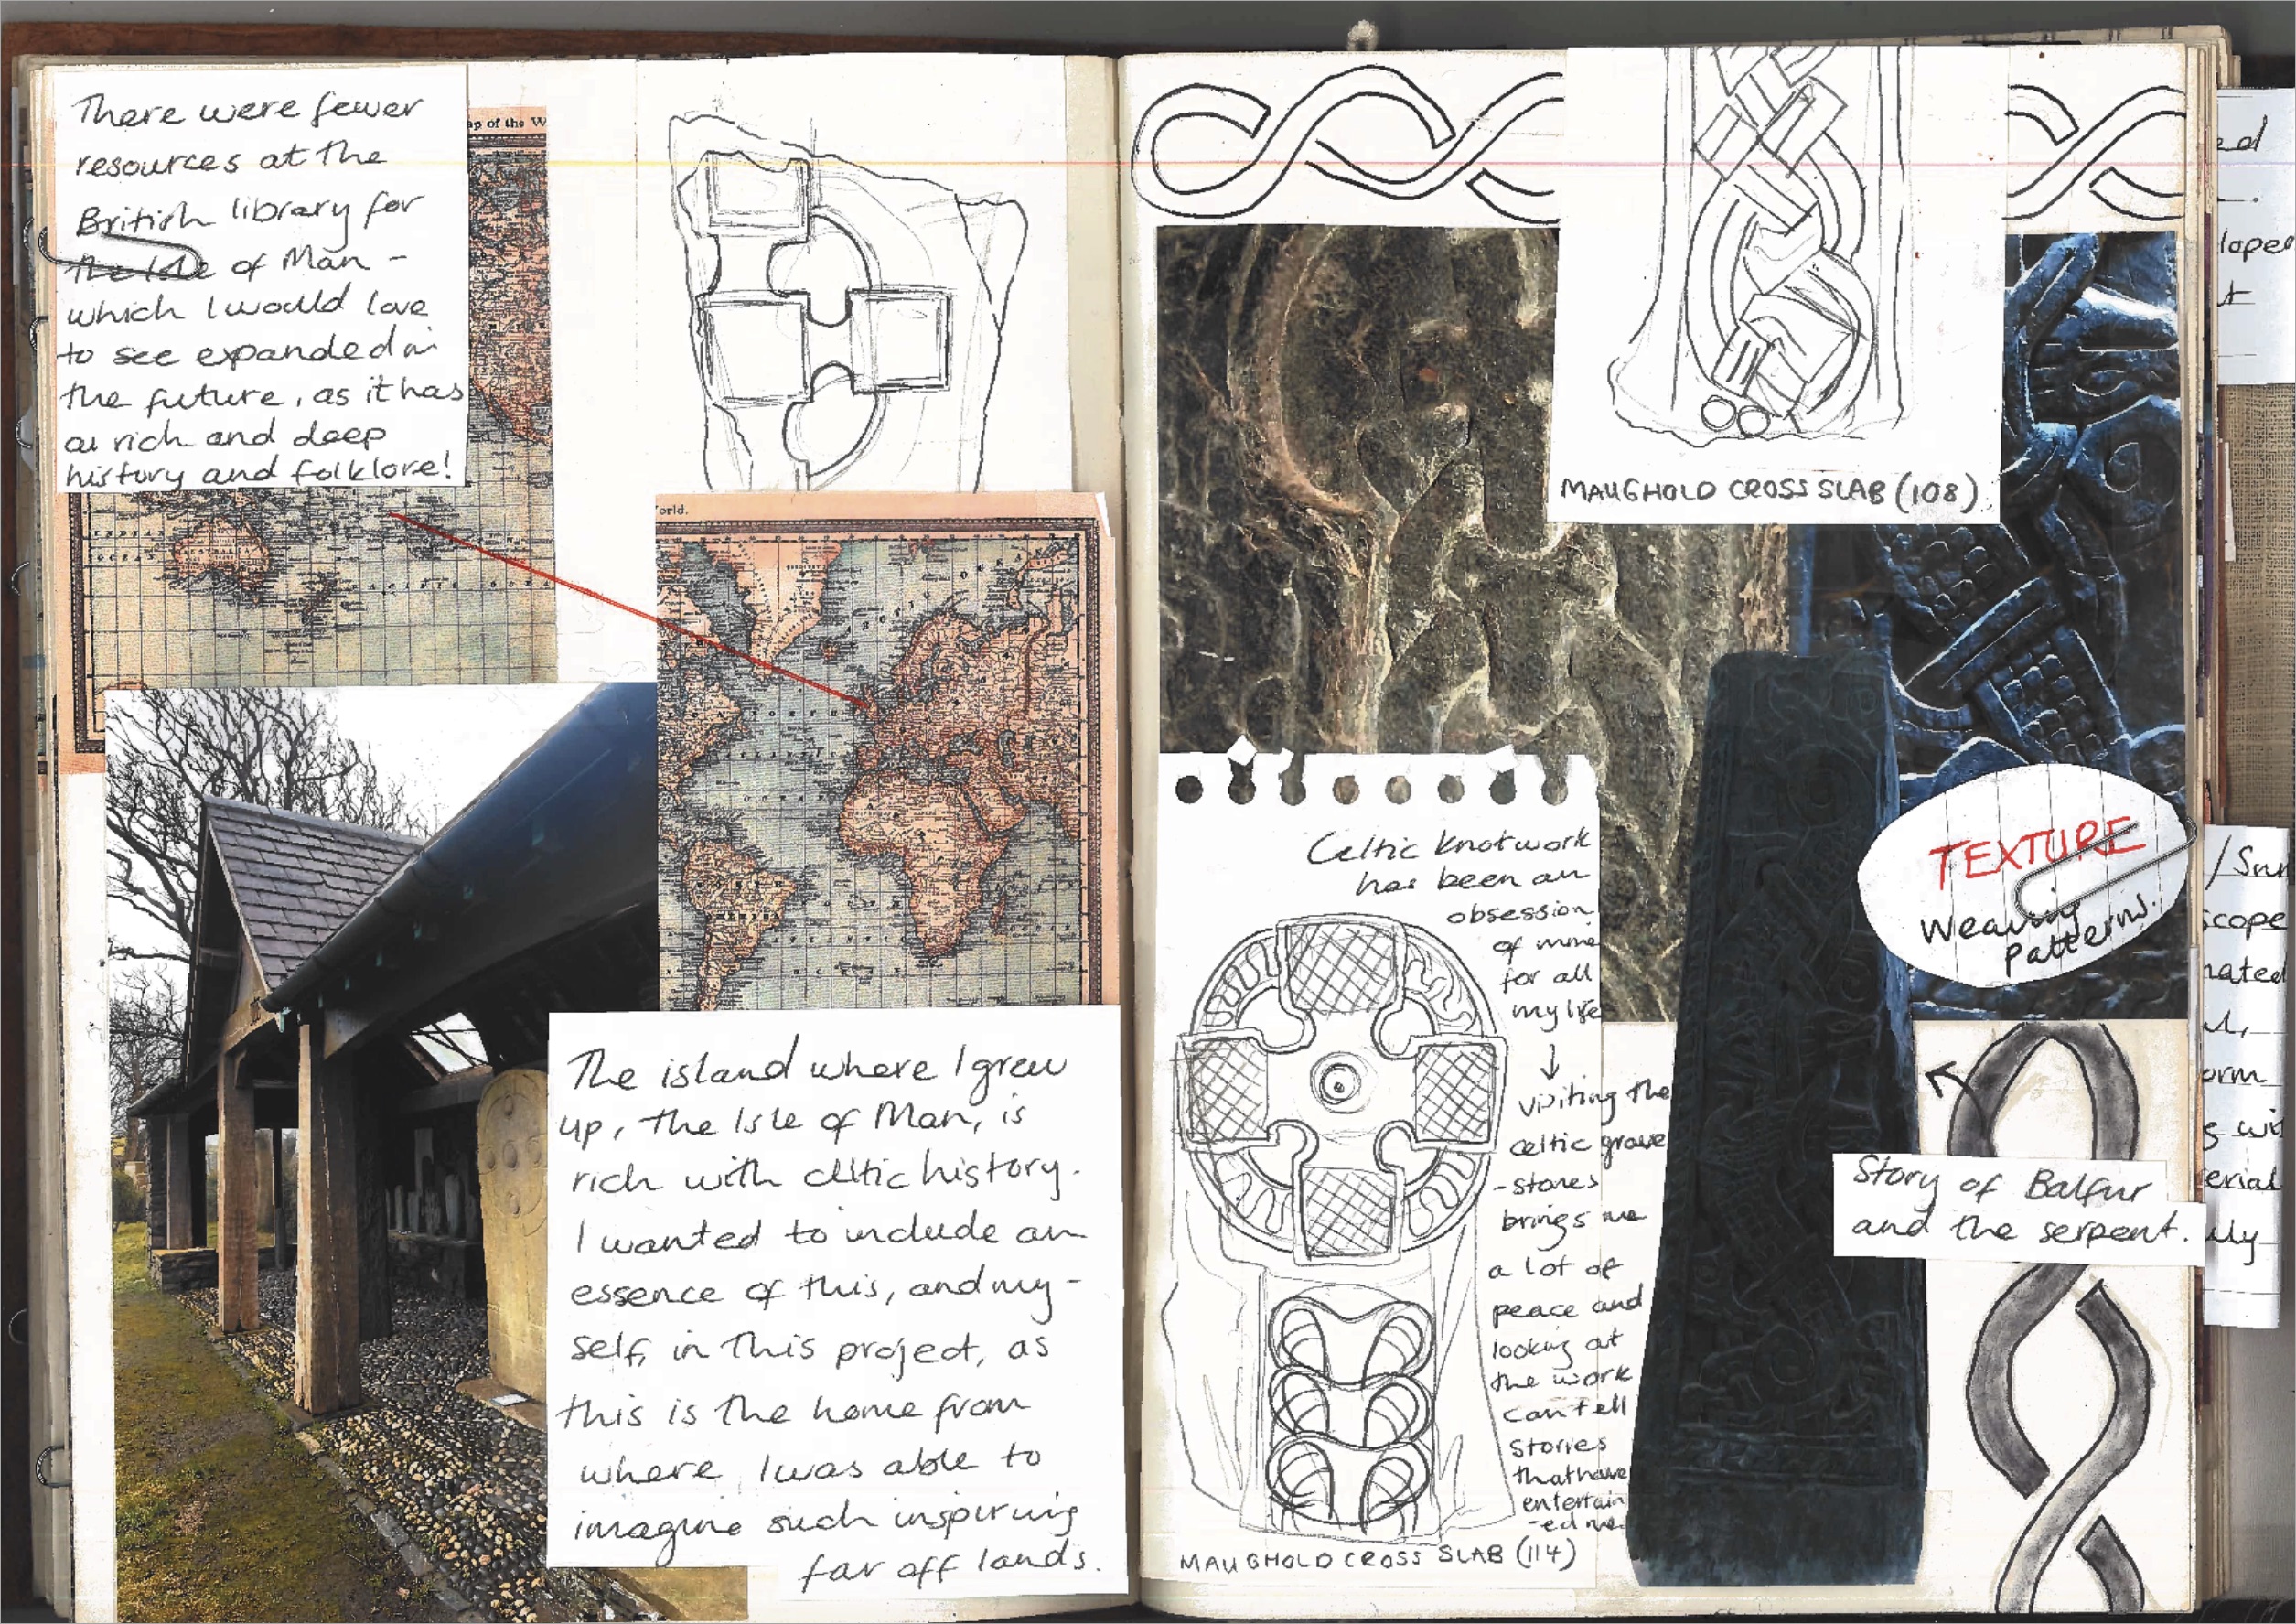 There were fewer
resources at the
British library for
the Isle of Man -
which I would love
to see expanded in
the future, as it has
a rich and deep
history and folklore!
ap of the W
orld.
AUSTRALIA
The island where I grew
up, the Isle of Man, is
rich with celtic history.
I wanted to include an
essence of this, and my-
self, in this project, as
this is the home from
where I was able to
imagine such inspiring
far off lands.
MAUGHOLD CROSS SLAB (108)
Celtic knotwork
has been an
obsession
of mine
for all
my life
↓
visiting the
celtic grave
-stones
brings me
a lot of
peace and
looking at
the work
can tell
stories
that have
entertain
-ed me
MAUGHOLD CROSS SLAB (114)
TEXTURE
Weaving
Patterns.
Story of Balfur
and the serpent.
ed
loped
t
scope
nated
orm
g wit
erial
lly